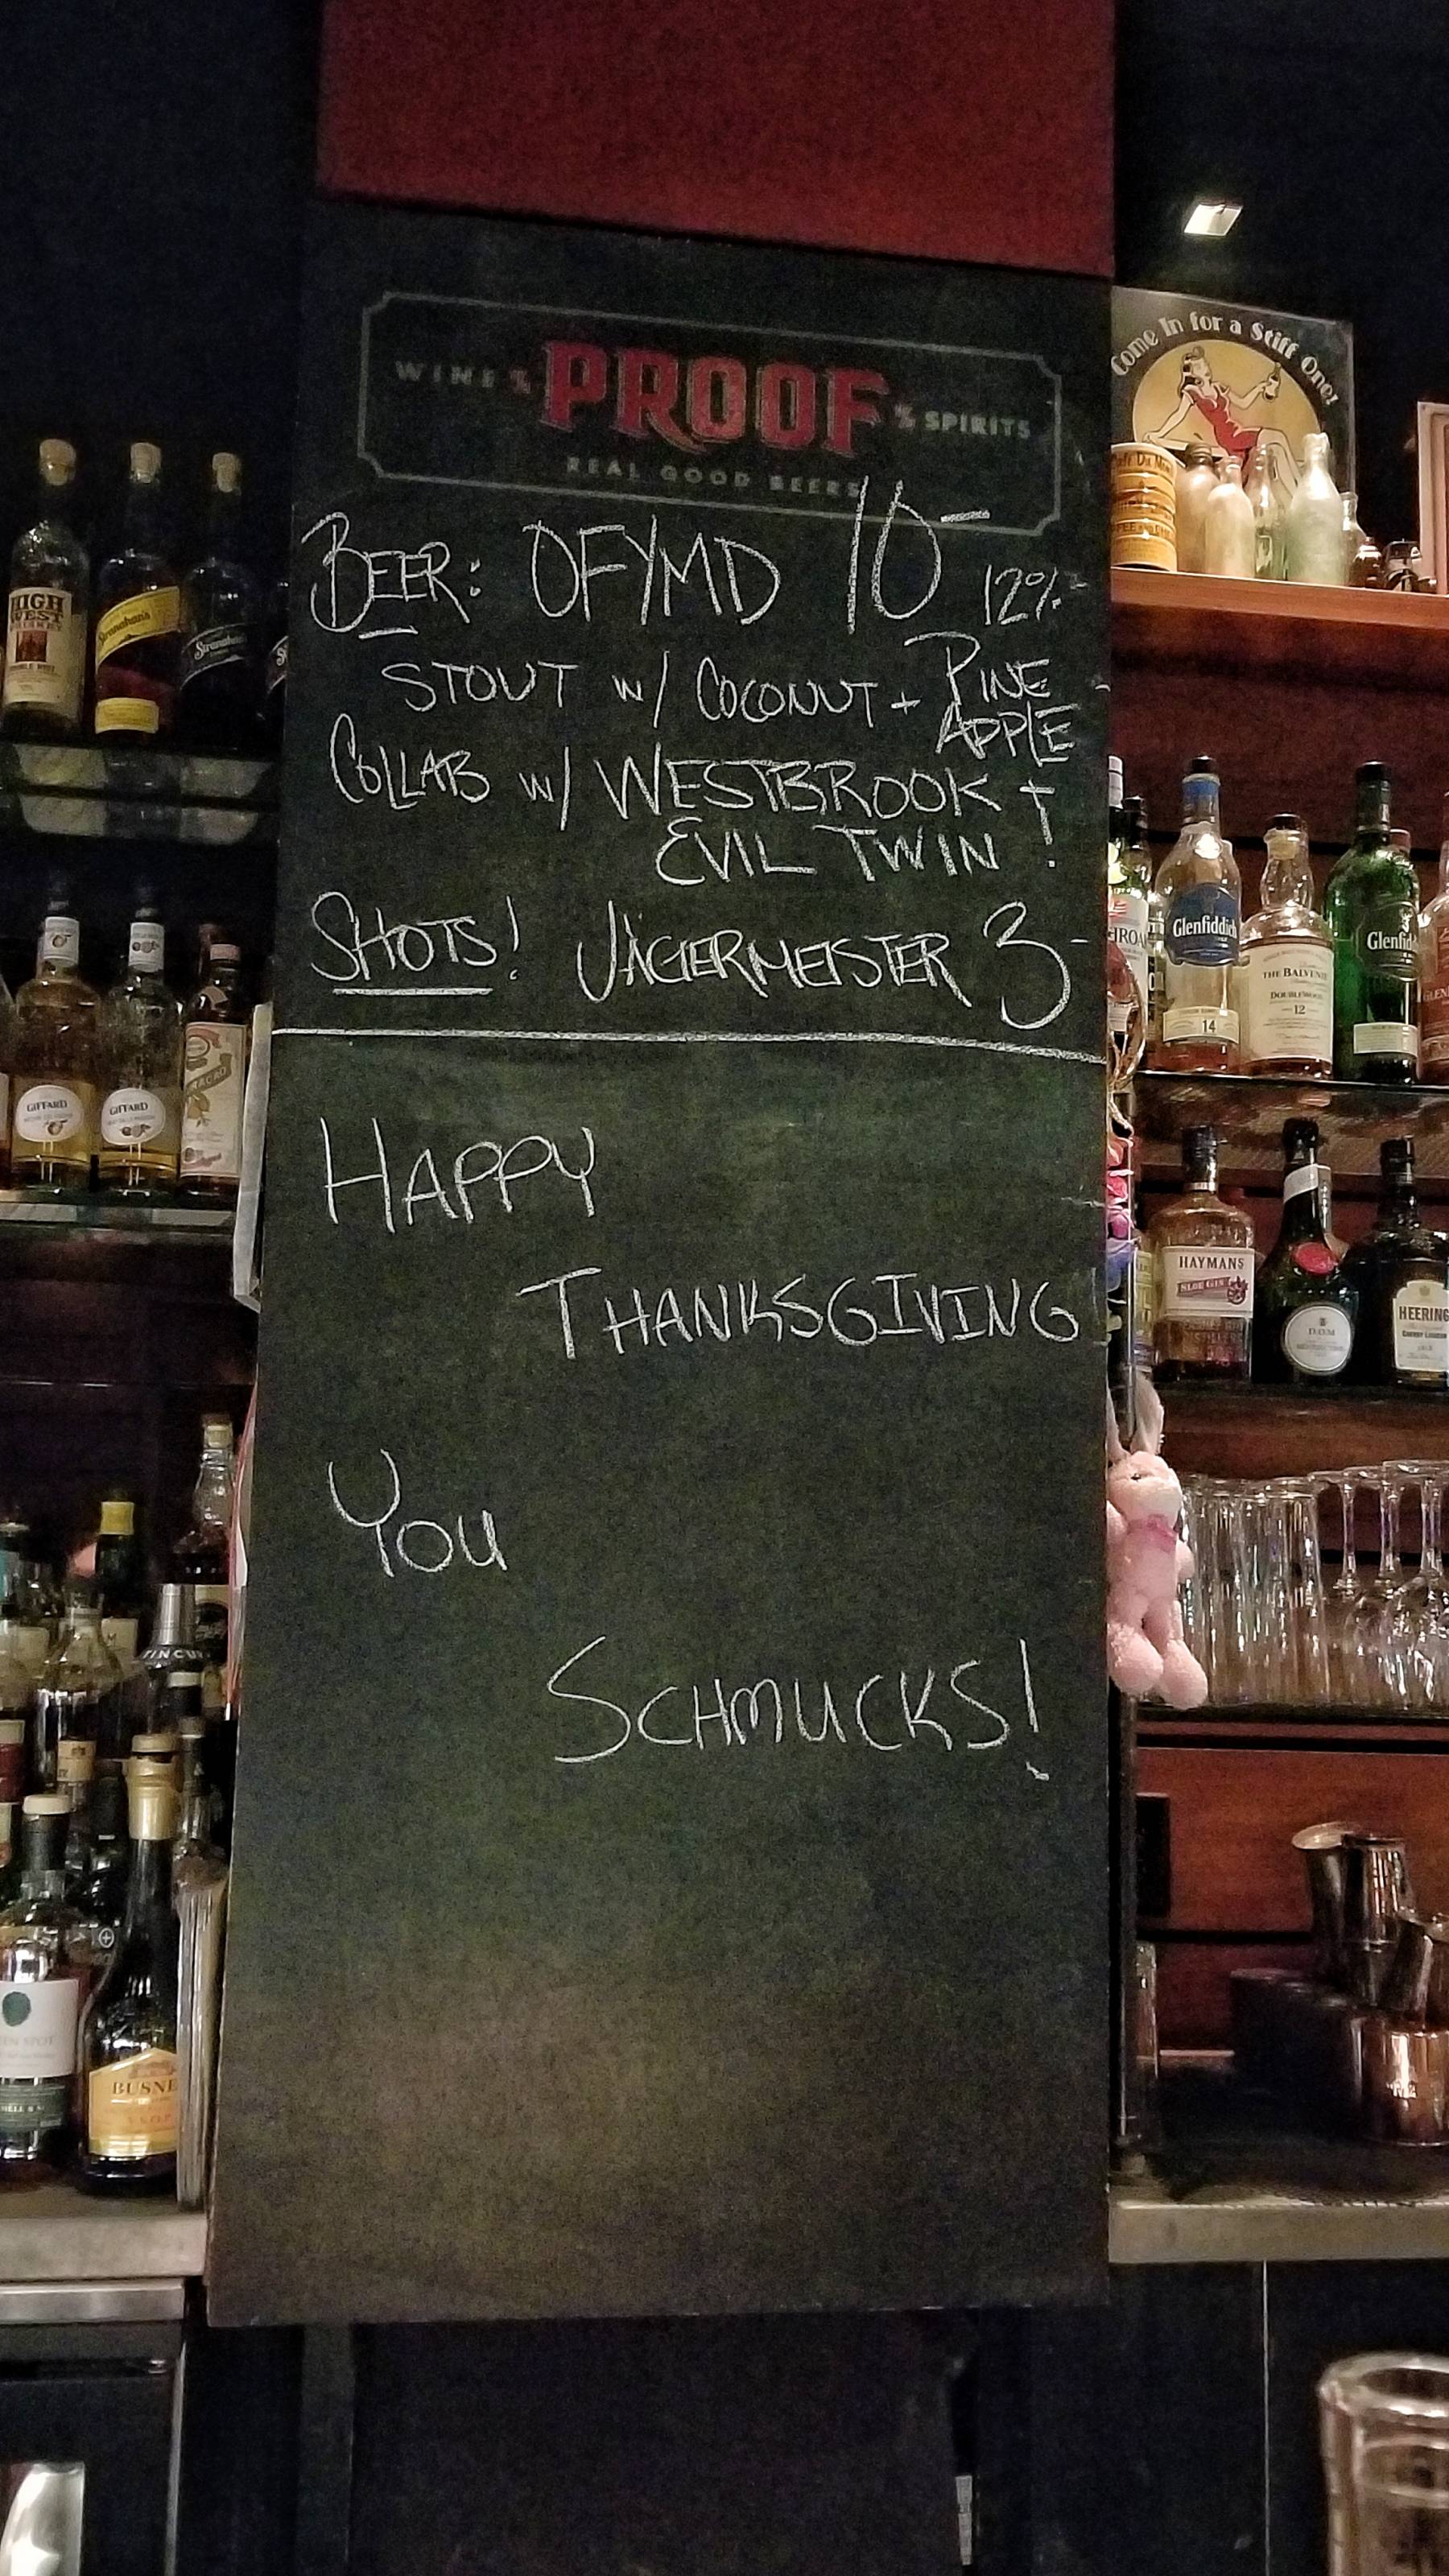 WINE & PROOF & SPIRITS
REAL GOOD BEERS
BEER: OFYMD 10- 12%
STOUT w/ COCONUT + PINE
APPLE
COLLAB w/ WESTBROOK +
EVIL TWIN !
SHOTS! JÄGERMEISTER 3-
HAPPY
THANKSGIVING
YOU
SCHMUCKS!
Come In for a Stiff One!
HIGH
WEST
Stranahan's
Stranahan's
GIFFARD
GIFFARD
BUSNE
Glenfiddich
14
THE BALVENIE
DOUBLEWOOD
12
Glenfid
HAYMANS
SLOE GIN
D.O.M
HEERING
CHERRY LIQUEUR